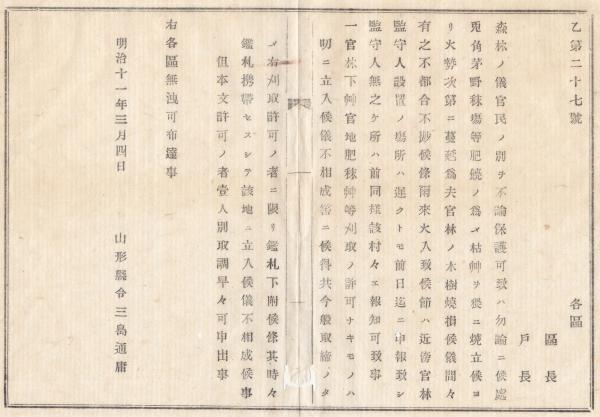 乙第二十七號
各區
區長
戶長
森林ノ儀官民ノ別ヲ不論保護可致ハ勿論ニ候處
兎角茅野秣塲等肥饒ノ爲メ枯艸ヲ猥ニ燒立候ヨ
リ火勢次第ニ蔓延爲夫官林ノ木樹燒損候儀間々
有之不都合不尠候條爾來火入致候節ハ近傍官林
監守人設置ノ塲所ハ遲クトモ前日迄ニ申報致シ
監守人無之ケ所ハ前同樣該村々エ報知可致事
一官林下艸官地肥秣艸等刈取ノ許可ナキモノハ
叨ニ立入候儀不相成筈ニ候得共今般取締ノタ
メ右刈取許可ノ者ニ限リ鑑札下附候條其時々
鑑札携帶セスシテ該地ニ立入候儀不相成候事
但本文許可ノ者壹人別取調早々可申出事
右各區無洩可布達事
明治十一年三月四日
山形縣令三島通庸